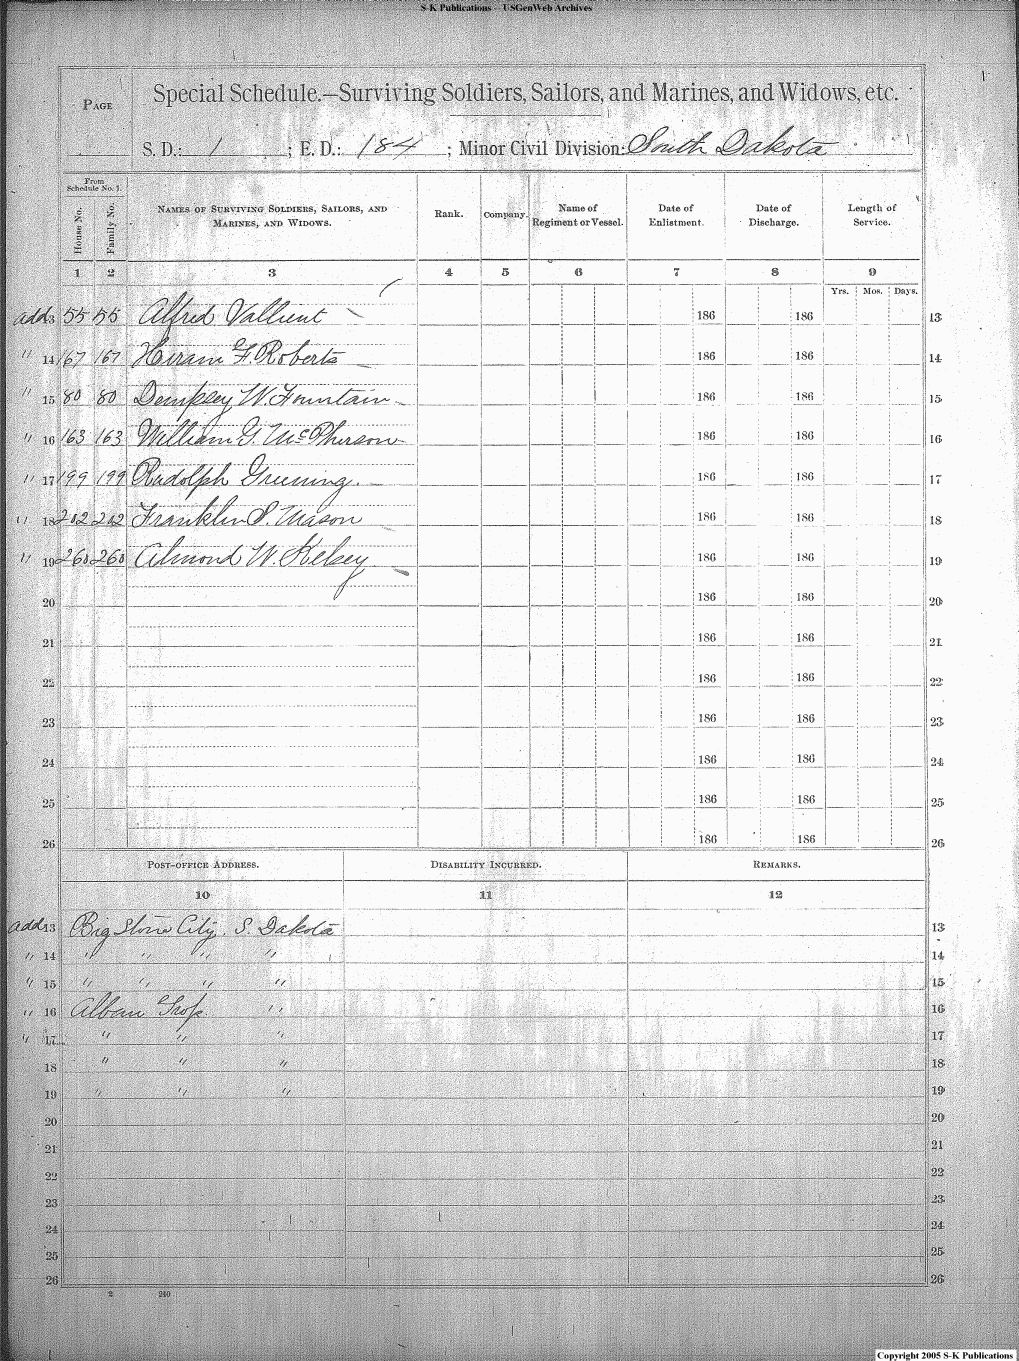 S-K Publications - USGenWeb Archives
PAGE
Special Schedule.—Surviving Soldiers, Sailors, and Marines, and Widows, etc.
S. D.: 1 ; E. D.: 184 ; Minor Civil Division: South Dakota
From Schedule No. 1.
House No. Family No. NAMES OF SURVIVING SOLDIERS, SAILORS, AND MARINES, AND WIDOWS. Rank. Company. Name of Regiment or Vessel. Date of Enlistment. Date of Discharge. Length of Service.
1 2 3 4 5 6 7 8 9
Yrs. Mos. Days.
add 13 55 55 Alfred Vallient 186 186 13
" 14 167 167 Hiram F. Roberts 186 186 14
" 15 80 80 Dempsey W. Fountain 186 186 15
" 16 163 163 William G. McPherson 186 186 16
" 17 199 199 Rudolph Gruening. 186 186 17
" 18 202 202 Franklin S. Mason 186 186 18
" 19 260 260 Almond W. Kelsey 186 186 19
20 186 186 20
21 186 186 21
22 186 186 22
23 186 186 23
24 186 186 24
25 186 186 25
26 186 186 26
POST-OFFICE ADDRESS. DISABILITY INCURRED. REMARKS.
10 11 12
add 13 Big Stone City, S. Dakota 13
" 14 " " " " 14
" 15 " " " " 15
" 16 Alban " 16
" 17 " " " 17
18 " " " 18
19 " " " 19
20 20
21 21
22 22
23 23
24 24
25 25
26 26
2 240
Copyright 2005 S-K Publications